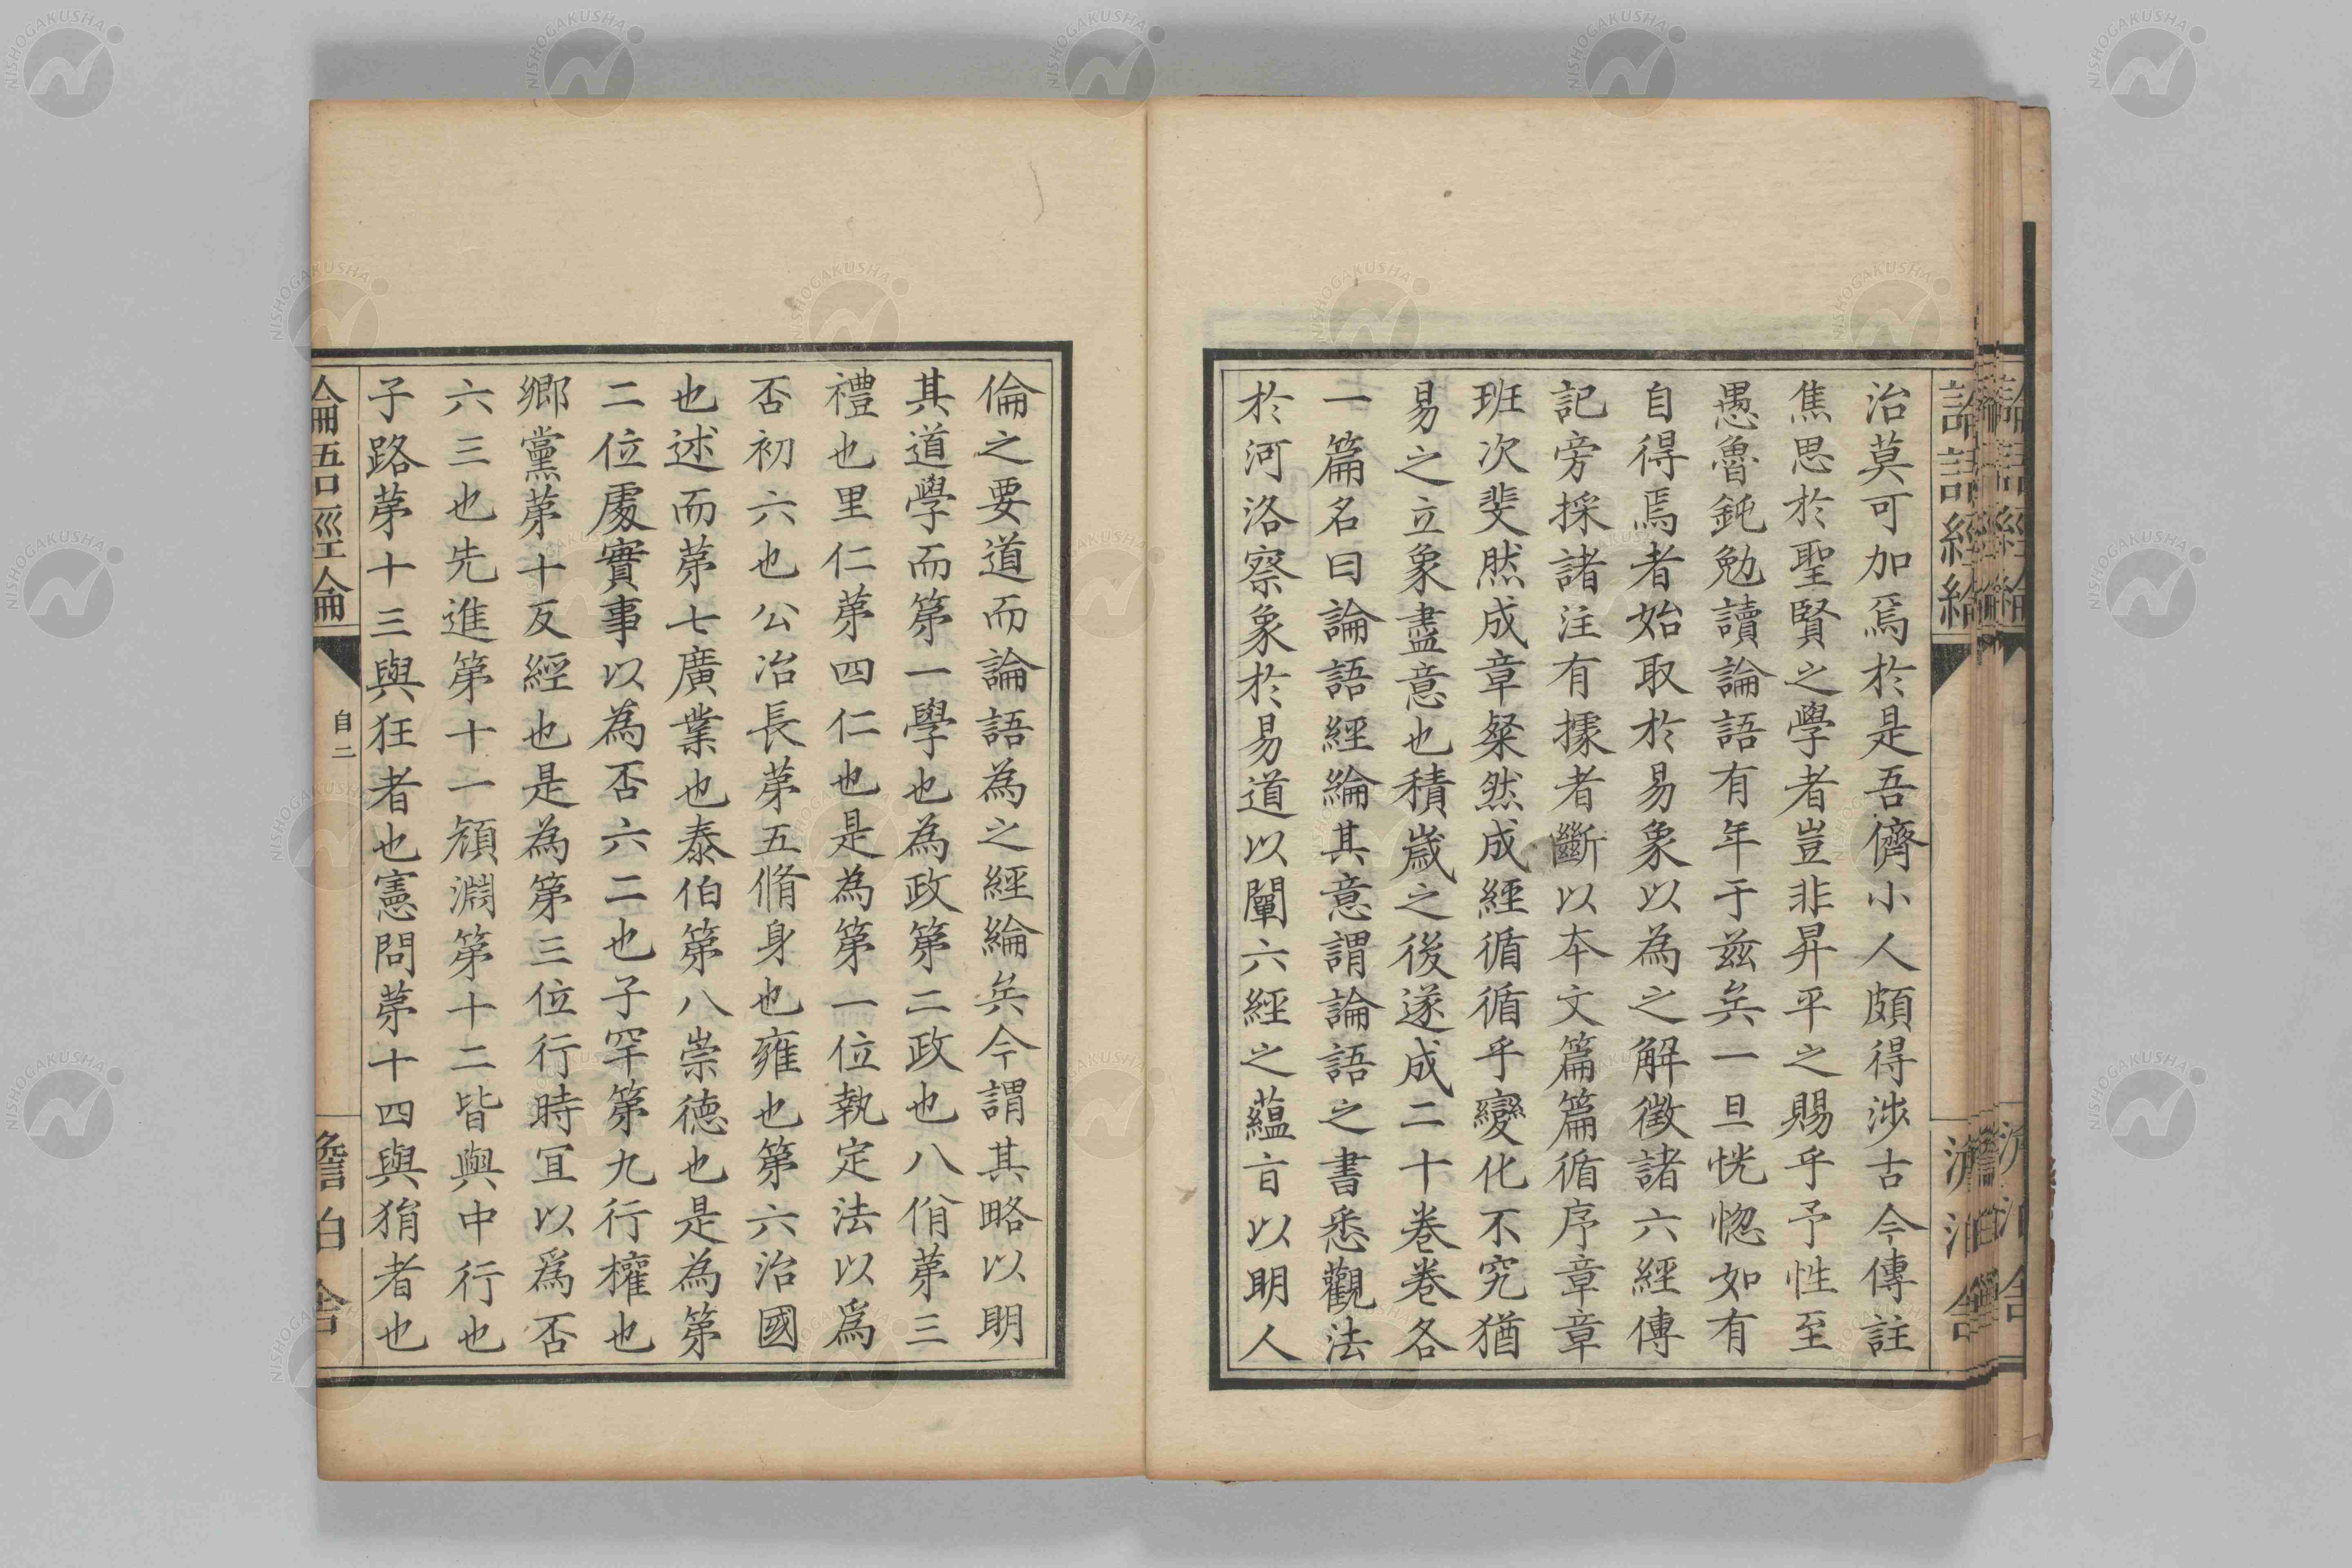 治莫可加焉於是吾儕小人頗得涉古今傳註
焦思於聖賢之學者豈非昇平之賜乎予性至
愚魯鈍勉讀論語有年于茲矣一旦恍惚如有
自得焉者始取於易象以為之解徵諸六經傳
記旁採諸注有據者斷以本文篇篇循序章章
班次斐然成章粲然成經循循乎變化不究猶
易之立象盡意也積歲之後遂成二十卷卷各
一篇名曰論語經綸其意謂論語之書悉觀法
於河洛察象於易道以闡六經之蘊旨以明人
倫之要道而論語為之經綸矣今謂其略以明
其道學而第一學也為政第二政也八佾第三
禮也里仁第四仁也是為第一位執定法以爲
否初六也公冶長第五脩身也雍也第六治國
也述而第七廣業也泰伯第八崇德也是為第
二位處實事以為否六二也子罕第九行權也
鄉黨第十反經也是為第三位行時宜以爲否
六三也先進第十一顏淵第十二皆與中行也
子路第十三與狂者也憲問第十四與狷者也
論語經綸
自二
NISHOGAKUSHA